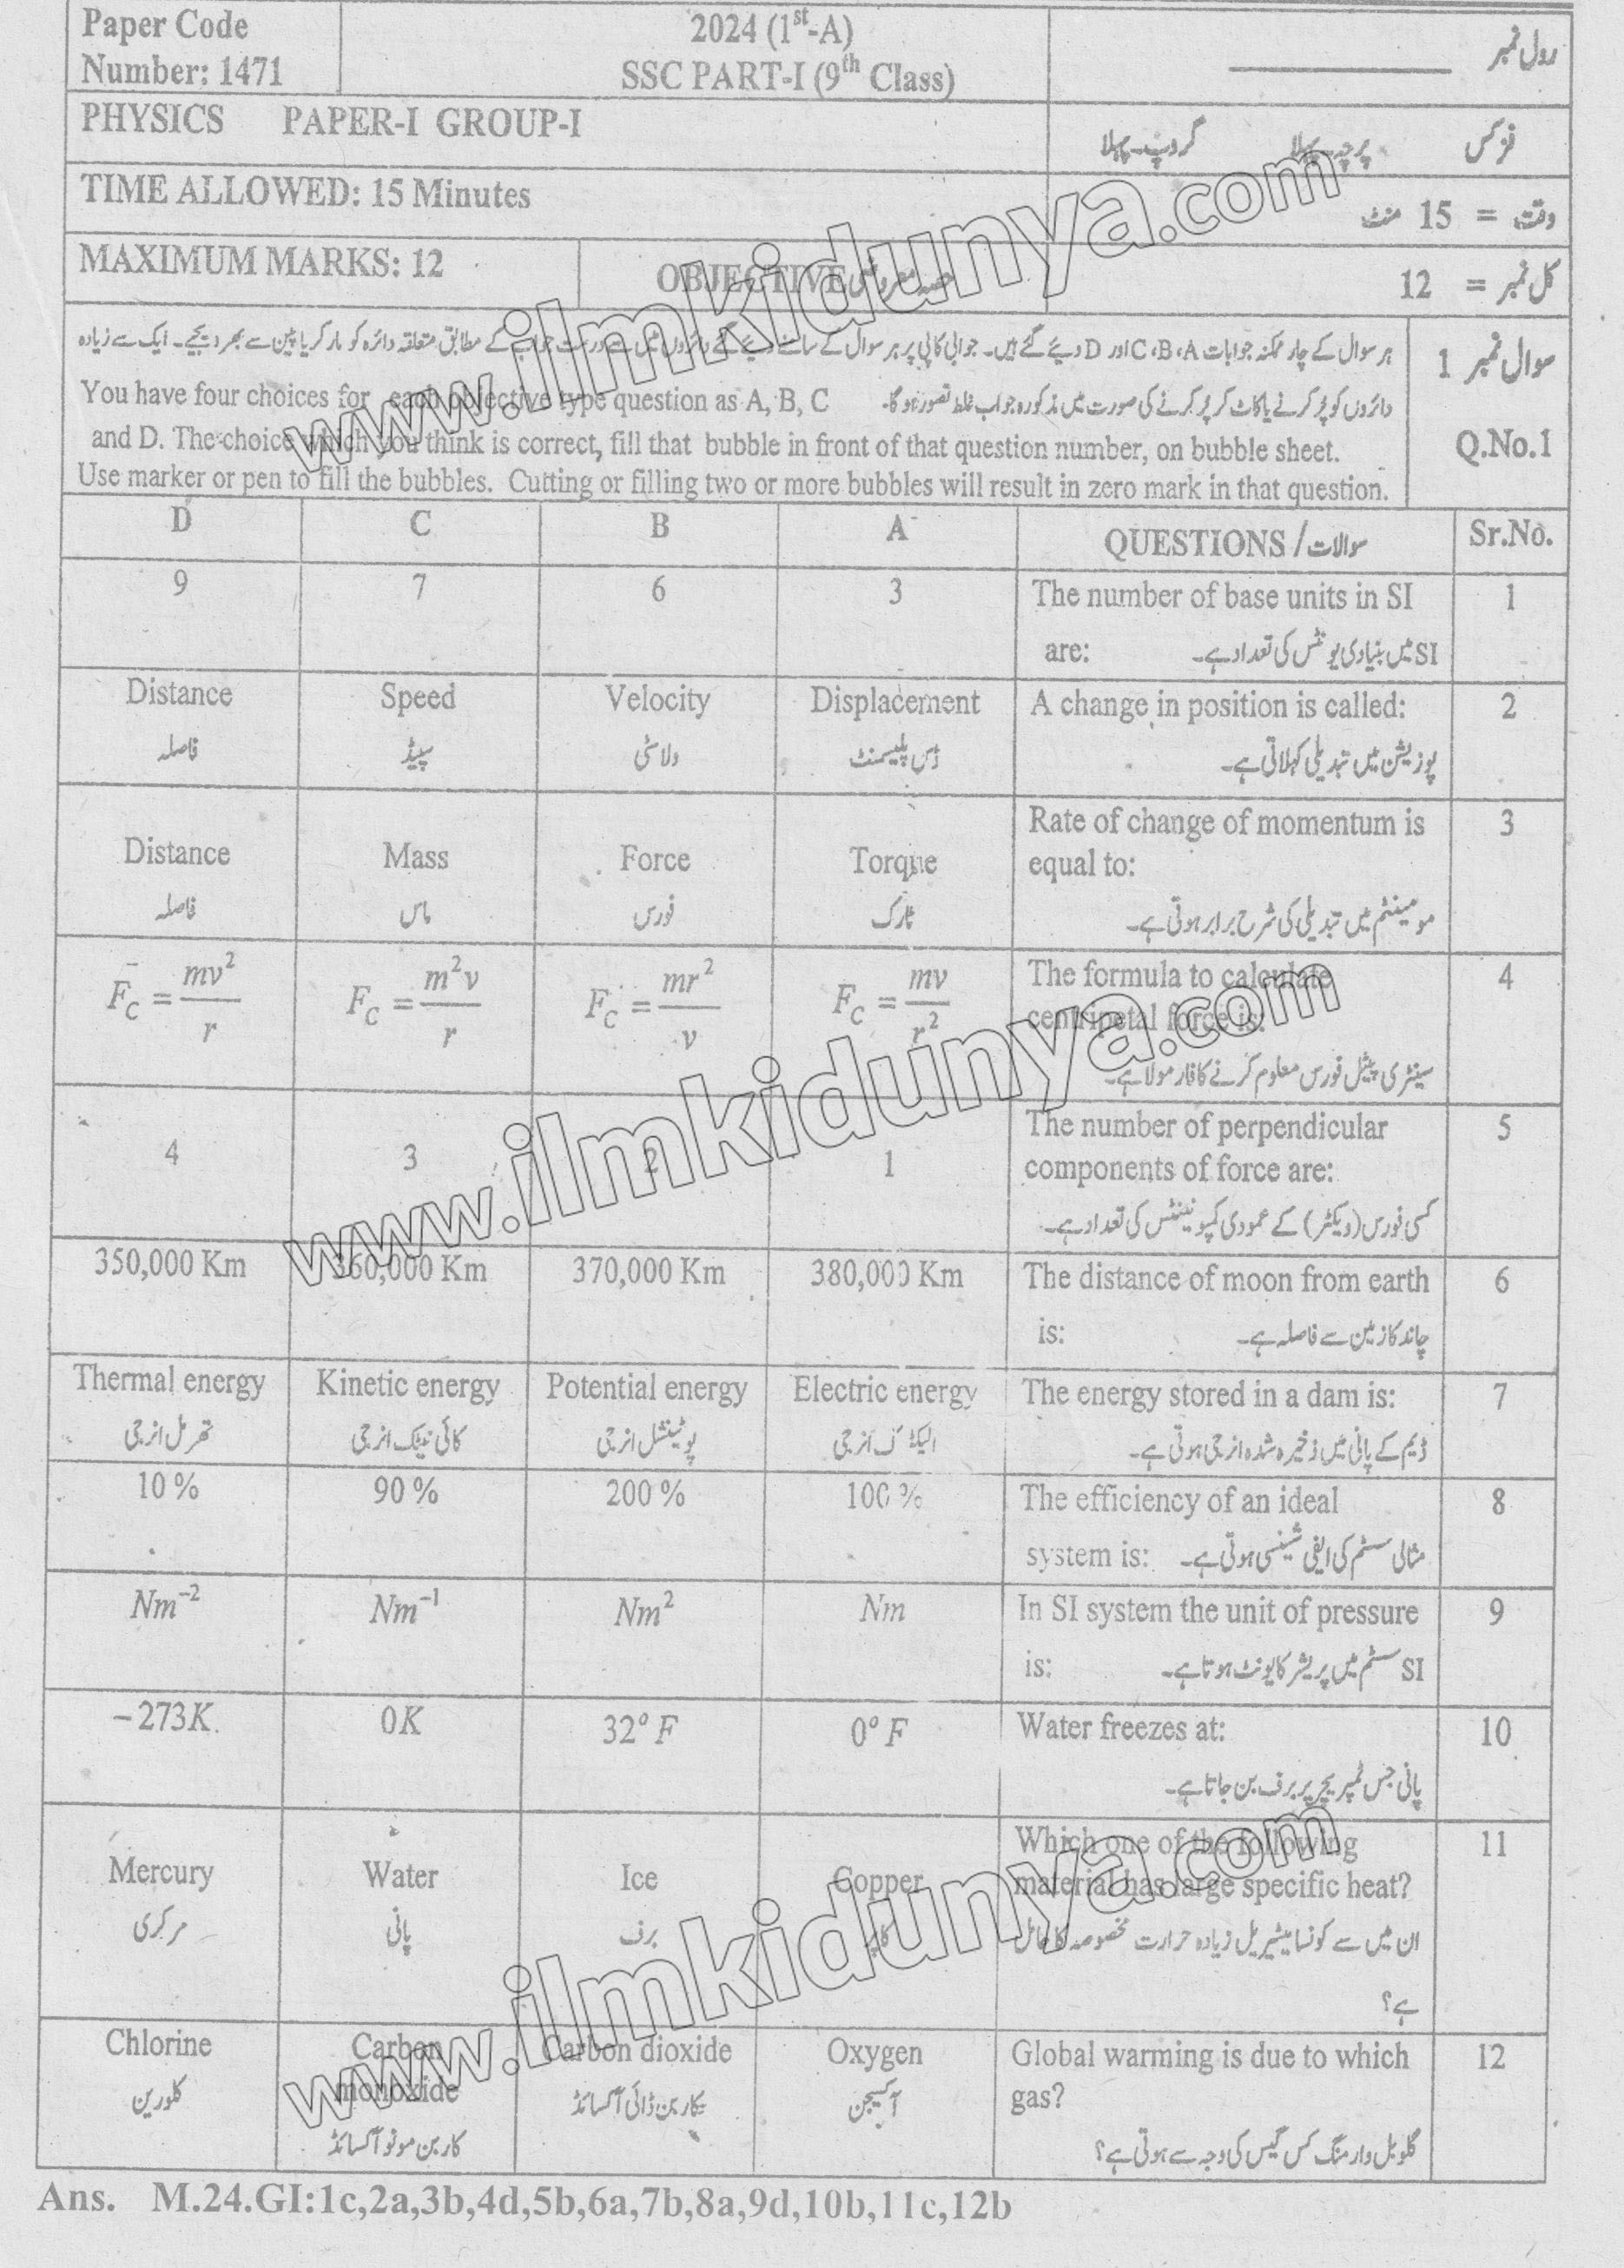 Paper Code
Number: 1471
2024 (1st-A)
SSC PART-I (9th Class)
رول نمبر
PHYSICS PAPER-I GROUP-I
فزکس پرچہ۔پہلا گروپ۔پہلا
TIME ALLOWED: 15 Minutes
وقت = 15 منٹ
MAXIMUM MARKS: 12
OBJECTIVE حصہ معروضی
کل نمبر = 12
سوال نمبر 1
Q.No.1
ہر سوال کے چار ممکنہ جوابات A، B، C اور D دیئے گئے ہیں۔ جوابی کاپی پر ہر سوال کے سامنے دیئے گئے دائروں میں سے درست جواب کے مطابق متعلقہ دائرہ کو مارکر یا پین سے بھر دیجیے۔ ایک سے زیادہ
دائروں کو پُر کرنے یا کاٹ کر پُر کرنے کی صورت میں مذکورہ جواب غلط تصور ہو گا۔
You have four choices for each objective type question as A, B, C
and D. The choice which you think is correct, fill that bubble in front of that question number, on bubble sheet.
Use marker or pen to fill the bubbles. Cutting or filling two or more bubbles will result in zero mark in that question.
D C B A QUESTIONS / سوالات Sr.No.
9 7 6 3 The number of base units in SI 1
are: SI میں بنیادی یونٹس کی تعداد ہے۔
Distance Speed Velocity Displacement A change in position is called: 2
فاصلہ سپیڈ ولاسٹی ڈس پلیسمنٹ پوزیشن میں تبدیلی کہلاتی ہے۔
Rate of change of momentum is 3
Distance Mass Force Torque equal to:
فاصلہ ماس فورس ٹارک مومینٹم میں تبدیلی کی شرح برابر ہوتی ہے۔
F_C = mv²/r F_C = m²v/r F_C = mr²/v F_C = mv/r² The formula to calculate 4
centripetal force is:
سینٹری پیٹل فورس معلوم کرنے کا فارمولا ہے۔
The number of perpendicular 5
4 3 2 1 components of force are:
کسی فورس (ویکٹر) کے عمودی کمپوننٹس کی تعداد ہے۔
350,000 Km 360,000 Km 370,000 Km 380,000 Km The distance of moon from earth 6
is: چاند کا زمین سے فاصلہ ہے۔
Thermal energy Kinetic energy Potential energy Electric energy The energy stored in a dam is: 7
تھرمل انرجی کائی نیٹک انرجی پوٹینشل انرجی الیکٹرک انرجی ڈیم کے پانی میں ذخیرہ شدہ انرجی ہوتی ہے۔
10 % 90 % 200 % 100 % The efficiency of an ideal 8
system is: مثالی سسٹم کی ایفی شینسی ہوتی ہے۔
Nm⁻² Nm⁻¹ Nm² Nm In SI system the unit of pressure 9
is: SI سسٹم میں پریشر کا یونٹ ہوتا ہے۔
−273K 0K 32° F 0° F Water freezes at: 10
پانی جس ٹمپریچر پر برف بن جاتا ہے۔
Which one of the following 11
Mercury Water Ice Copper material has large specific heat?
مرکری پانی برف کاپر ان میں سے کونسا میٹیریل زیادہ حرارت مخصوصہ کا حامل
ہے؟
Chlorine Carbon Carbon dioxide Oxygen Global warming is due to which 12
monoxide gas?
کلورین کاربن مونو آکسائڈ کاربن ڈائی آکسائڈ آکسیجن گلوبل وارمنگ کس گیس کی وجہ سے ہوتی ہے؟
Ans. M.24.GI:1c,2a,3b,4d,5b,6a,7b,8a,9d,10b,11c,12b
www.ilmkidunya.com
www.ilmkidunya.com
www.ilmkidunya.com